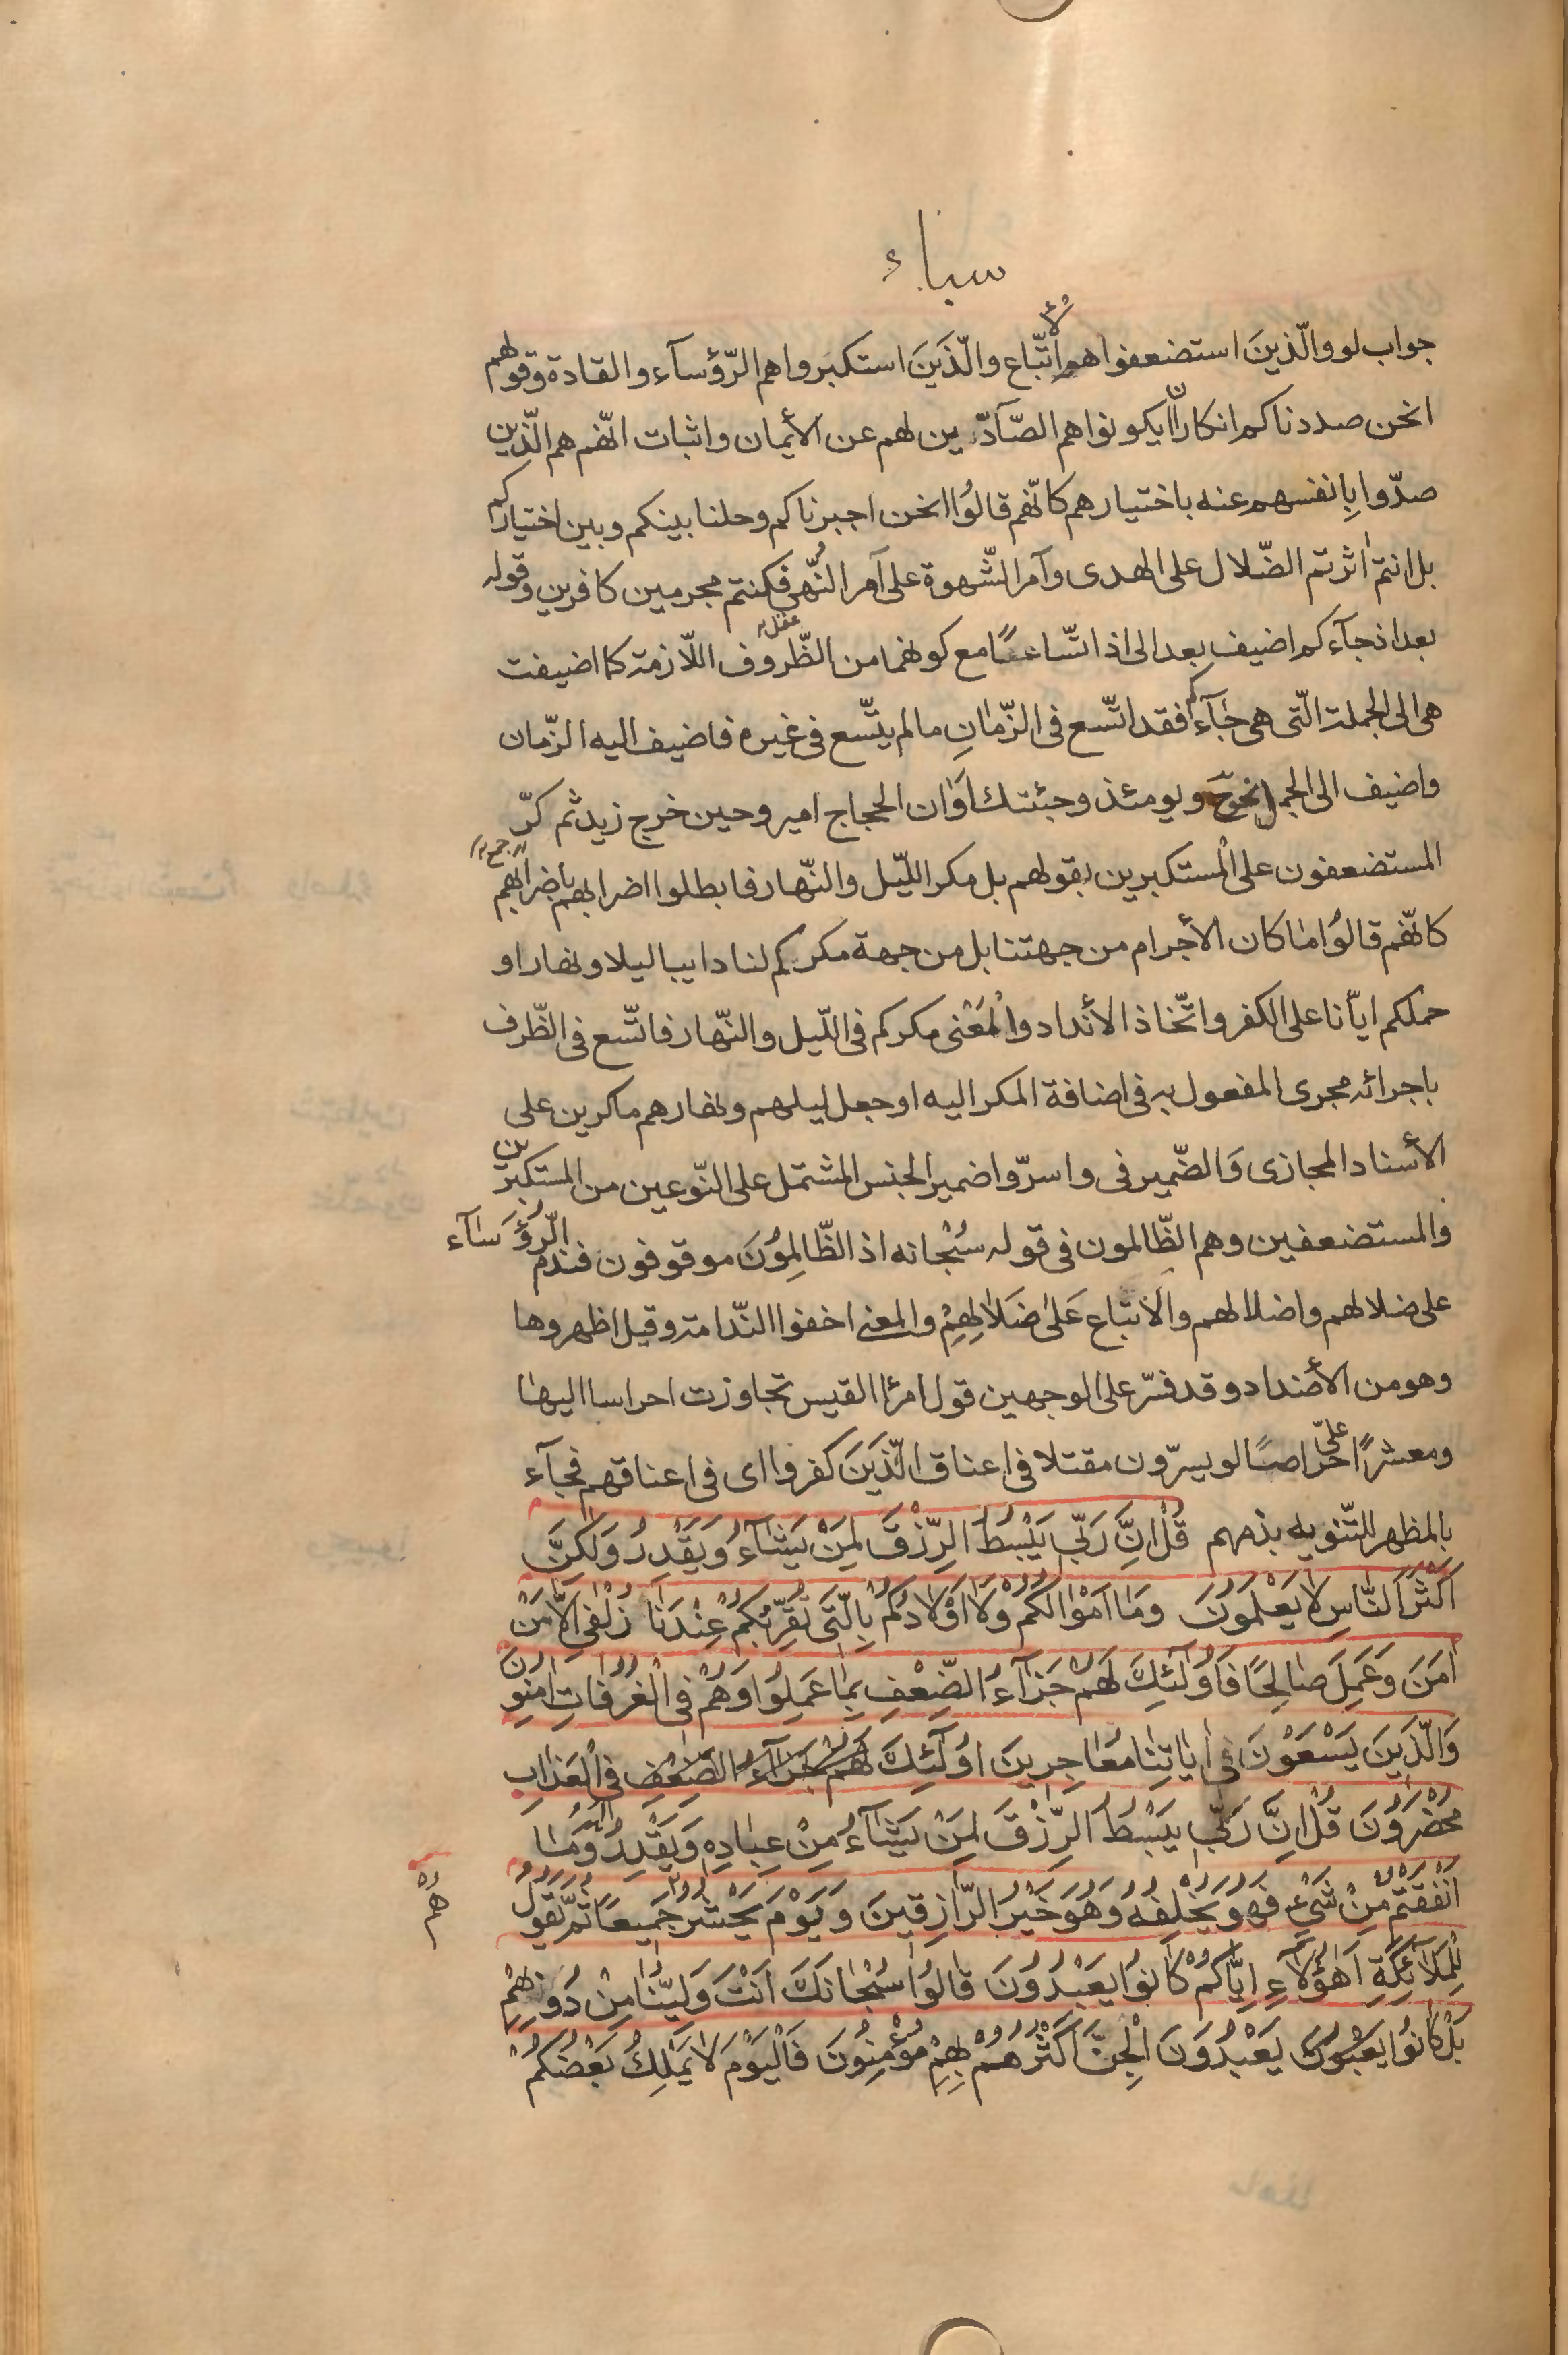 سباء
جواب لو والّذينَ استضعفوا هم الاتّباع والّذَينَ استكبَروا هم الرّؤسآء والقادة وقولهم
انحن صددناكم انكار ان يكونوا هم الصّآدّين لهم عن الأيمان واثبات انّهم هم الّذين
صدّوا بِانفسهم عنه باختيارهم كانّهم قالوُا انحن اجبرناكم وحلنا بينكم وبين اختياركم
بل انتم اثرتم الضّلال على الهدى وآمر الشّهوة على آمر النُّهى فكنتم مجرمين كافرين وقوله
عقل
بعد اذ جآءكم اضيف بعد الى اذ اتّساعًا مع كونهما من الظّروف اللّازمة كما اضيفت
هى الى الجملة الّتى هى جَآءكم فقد اتّسع فى الزّمانِ ما لم يتّسع فى غيره فاضيف اليه الزّمان
واضيف الى الجمل نحو ويومئذ وجئتك اَوٰان الحجاج امير وحين خرج زيد ثم كرّ
المستضعفون على المستكبرين بقولهم بل مكر اللّيل والنّهار فابطلوا اضرابهم باضرابهم
كانّهم قالوُا ما كان الأجرام من جهتنا بل من جهة مكركم لنا دايبا ليلا ونهارا و
حملكم ايّانا على الكفر واتّخاذ الأنداد والمَعْنى مكركم فى اللّيل والنّهار فاتّسع فى الظّرف
باجرائه مجرى المفعول به فى اضافة المكر اليه او جعل ليلهم ونهارهم ماكرين على
الأسناد المجازى وَالضّمير فى واسرّوا ضمير الجنس المشتمل على النّوعين من المستكبرين
والمستضعفين وهم الظّالمون فى قوله سُبْحانه اذ الظّالِموُنَ موقوفون فندم الّرؤسٰآء
على ضلالهم واضلالهم والاتباع عَلىٰ ضَلاٰلِهِمْ والمعنى اخفوا النّدامة وقيل اظهروها
وهو من الأضداد وقد فسّر على الوجهين قول امرء القيس تجاوزت احراسا اليها
ومعشرًا علىّ حراصًا لو يسرّون مقتلا فى اعناق الّذَينَ كفروا اى فى اعناقهم فجآء
بالمظهر للتّنويه بذمهم قُلْ اِنَّ رَبّي يَبْسُطُ الرِّزْقَ لِمَنْ يَشٰآءُ وَيَقْدِرُ وَلٰكِنَّ
اَكْثَرَ النّٰاسِ لاٰ يَعْلَمُونَ وَمٰا اَمْوٰالُكُمْ وَلاٰ اَوْلاٰدُكُمْ بِالَّتي تُقَرِّبُكُمْ عِنْدَنٰا زُلْفىٰ اِلاّٰ مَنْ
اٰمَنَ وَعَمِلَ صٰالِحًا فَاُولٰئِكَ لَهُمْ جَزٰآءُ الضِّعْفِ بِمٰا عَمِلُوا وَهُمْ فِى الْغُرُفٰاتِ اٰمِنُونَ
وَالَّذينَ يَسْعَوْنَ فى اٰيٰاتِنٰا مُعٰاجِزينَ اوُلٰٓئِكَ لَهُمْ جَزٰآءُ الضِّعْفِ فِى الْعَذٰابِ
مُحْضَرُونَ قُلْ اِنَّ رَبّي يَبْسُطُ الرِّزْقَ لِمَنْ يَشٰآءُ مِنْ عِبٰادِهِ وَيَقْدِرُ لَهُ وَمٰا
اَنْفَقْتُمْ مِنْ شَىْءٍ فَهُوَ يُخْلِفُهُ وَهُوَ خَيْرُ الرّٰازِقينَ وَيَوْمَ يَحْشُرُهُمْ جَميعًا ثُمَّ يَقُولُ
هُمْ
لِلْمَلاٰئِكَةِ اَهٰؤُلاٰءِ اِيّٰاكُمْ كٰانُوا يَعْبُدُونَ قٰالُوا سُبْحٰانَكَ اَنْتَ وَلِيُّنٰا مِنْ دُونِهِمْ
بَلْ كٰانُوا يَعْبُدُونَ الْجِنَّ اَكْثَرُهُمْ بِهِمْ مُؤْمِنُونَ فَالْيَوْمَ لاٰ يَمْلِكُ بَعْضُكُمْ